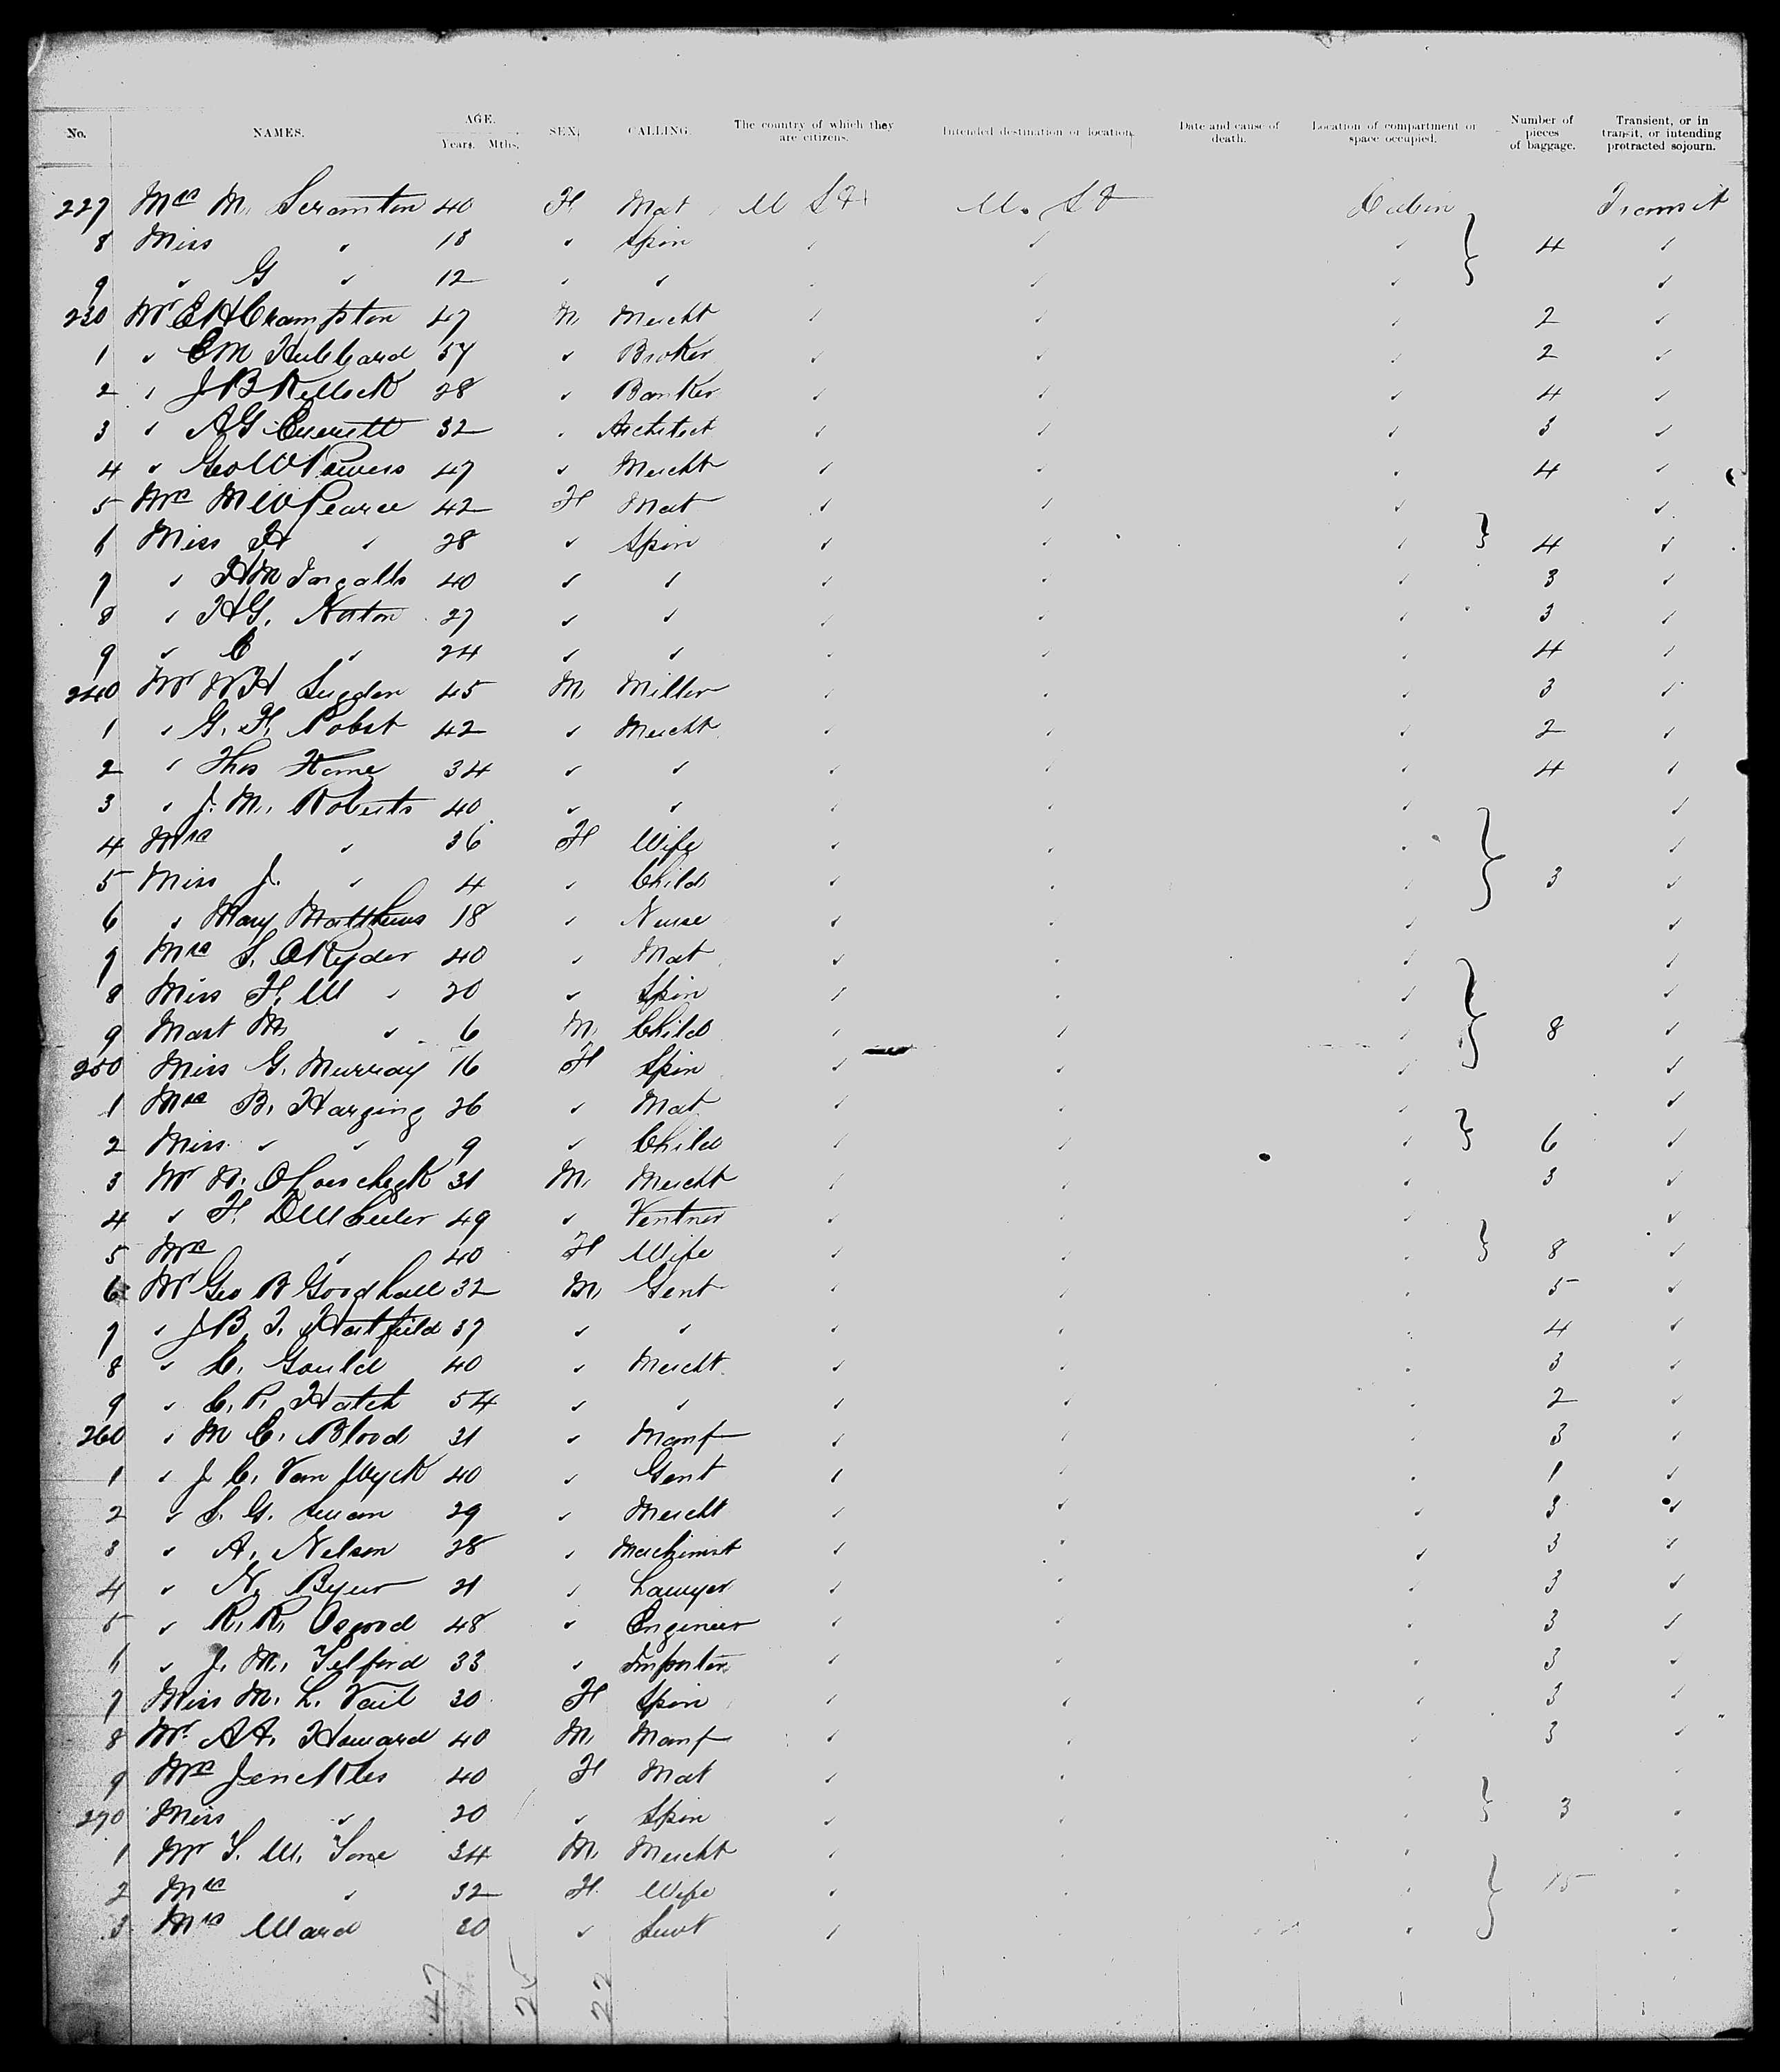 No. NAMES. AGE. Years. Mths. SEX. CALLING. The country of which they are citizens. Intended destination or location. Date and cause of death. Location of compartment or space occupied. Number of pieces of baggage. Transient, or in transit, or intending protracted sojourn.
227 Mrs M. Scranton 40 F Mat U S A U. S A Cabin Transit
8 Miss " 18 " Spin " " " 4 "
9 " G " 12 " " " " " "
230 Mr E H Crampton 47 M Mercht " " " 2 "
1 " E M Hubbard 57 " Broker " " " 2 "
2 " J B Kellock 28 " Banker " " " 4 "
3 " A G Everett 32 " Architect " " " 3 "
4 " Geo W Powers 47 " Mercht " " " 4 "
5 Mrs M W Pearce 42 F Mat " " " "
6 Miss H " 28 " Spin " " " 4 "
7 " H M Ingalls 40 " " " " " 3 "
8 " H G. Norton 27 " " " " " 3 "
9 " C " 24 " " " " " 4 "
240 Mr W H Sugden 45 M. Miller " " " 3 "
1 " G. F. Pabst 42 " Mercht " " " 2 "
2 " Thos Horne 34 " " " " " 4 "
3 " J. M. Roberts 40 " " " " " "
4 Mrs " 36 F Wife " " " "
5 Miss J. " 4 " Child " " " 3 "
6 " Mary Matthews 18 " Nurse " " " "
7 Mrs S. O Ryder 40 " Mat " " " "
8 Miss F. W " 20 " Spin " " " "
9 Mast M " 6 M. Child " " " 8 "
250 Miss G. Murray 16 F Spin " " " "
1 Mrs B. Harging 26 " Mat " " " "
2 Miss " " 9 " Child " " " 6 "
3 Mr 31 M. Mercht " " " 3 "
4 " F. D Wheeler 49 " Ventner " " " "
5 Mrs " 40 F Wife " " " 8 "
6 Mr Geo R Goodhall 32 M. Gent " " " 5 "
7 " J B. T. Hatfield 37 " " " " " 4 "
8 " C. Gould 40 " Mercht " " " 3 "
9 " C. P. Hatch 54 " " " " " 2 "
260 " M C. Blood 31 " Manf " " " 3 "
1 " J C. Van Wyck 40 " Gent " " " 1 "
2 " S. G. Swan 29 " Mercht " " " 3 "
3 " A. Nelson 28 " Machinist " " " 3 "
4 " N. 21 " Lawyer " " " 3 "
5 " R. R. Osgood 48 " Engineer " " " 3 "
6 " J. M. Telford 33 " Importer " " " 3 "
7 Miss M. L. Vail 30 F Spin " " " 3 "
8 Mr. A A. Howard 40 M. Manf " " " 3 "
9 Mrs Jenckles 40 F Mat " " " "
270 Miss " 20 " Spin " " " 3 "
1 Mr S. W. Tone 34 M. Mercht " " " "
2 Mrs " 32 F. Wife " " " 15 "
3 Mrs Ward 30 " Servt " " " "
47 25 22